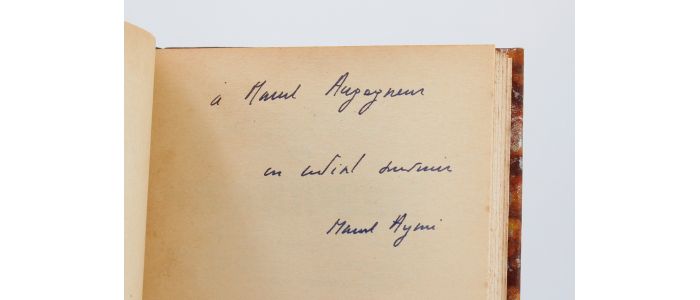 à Marcel Augagneur
en cordial souvenir
Marcel Aymé